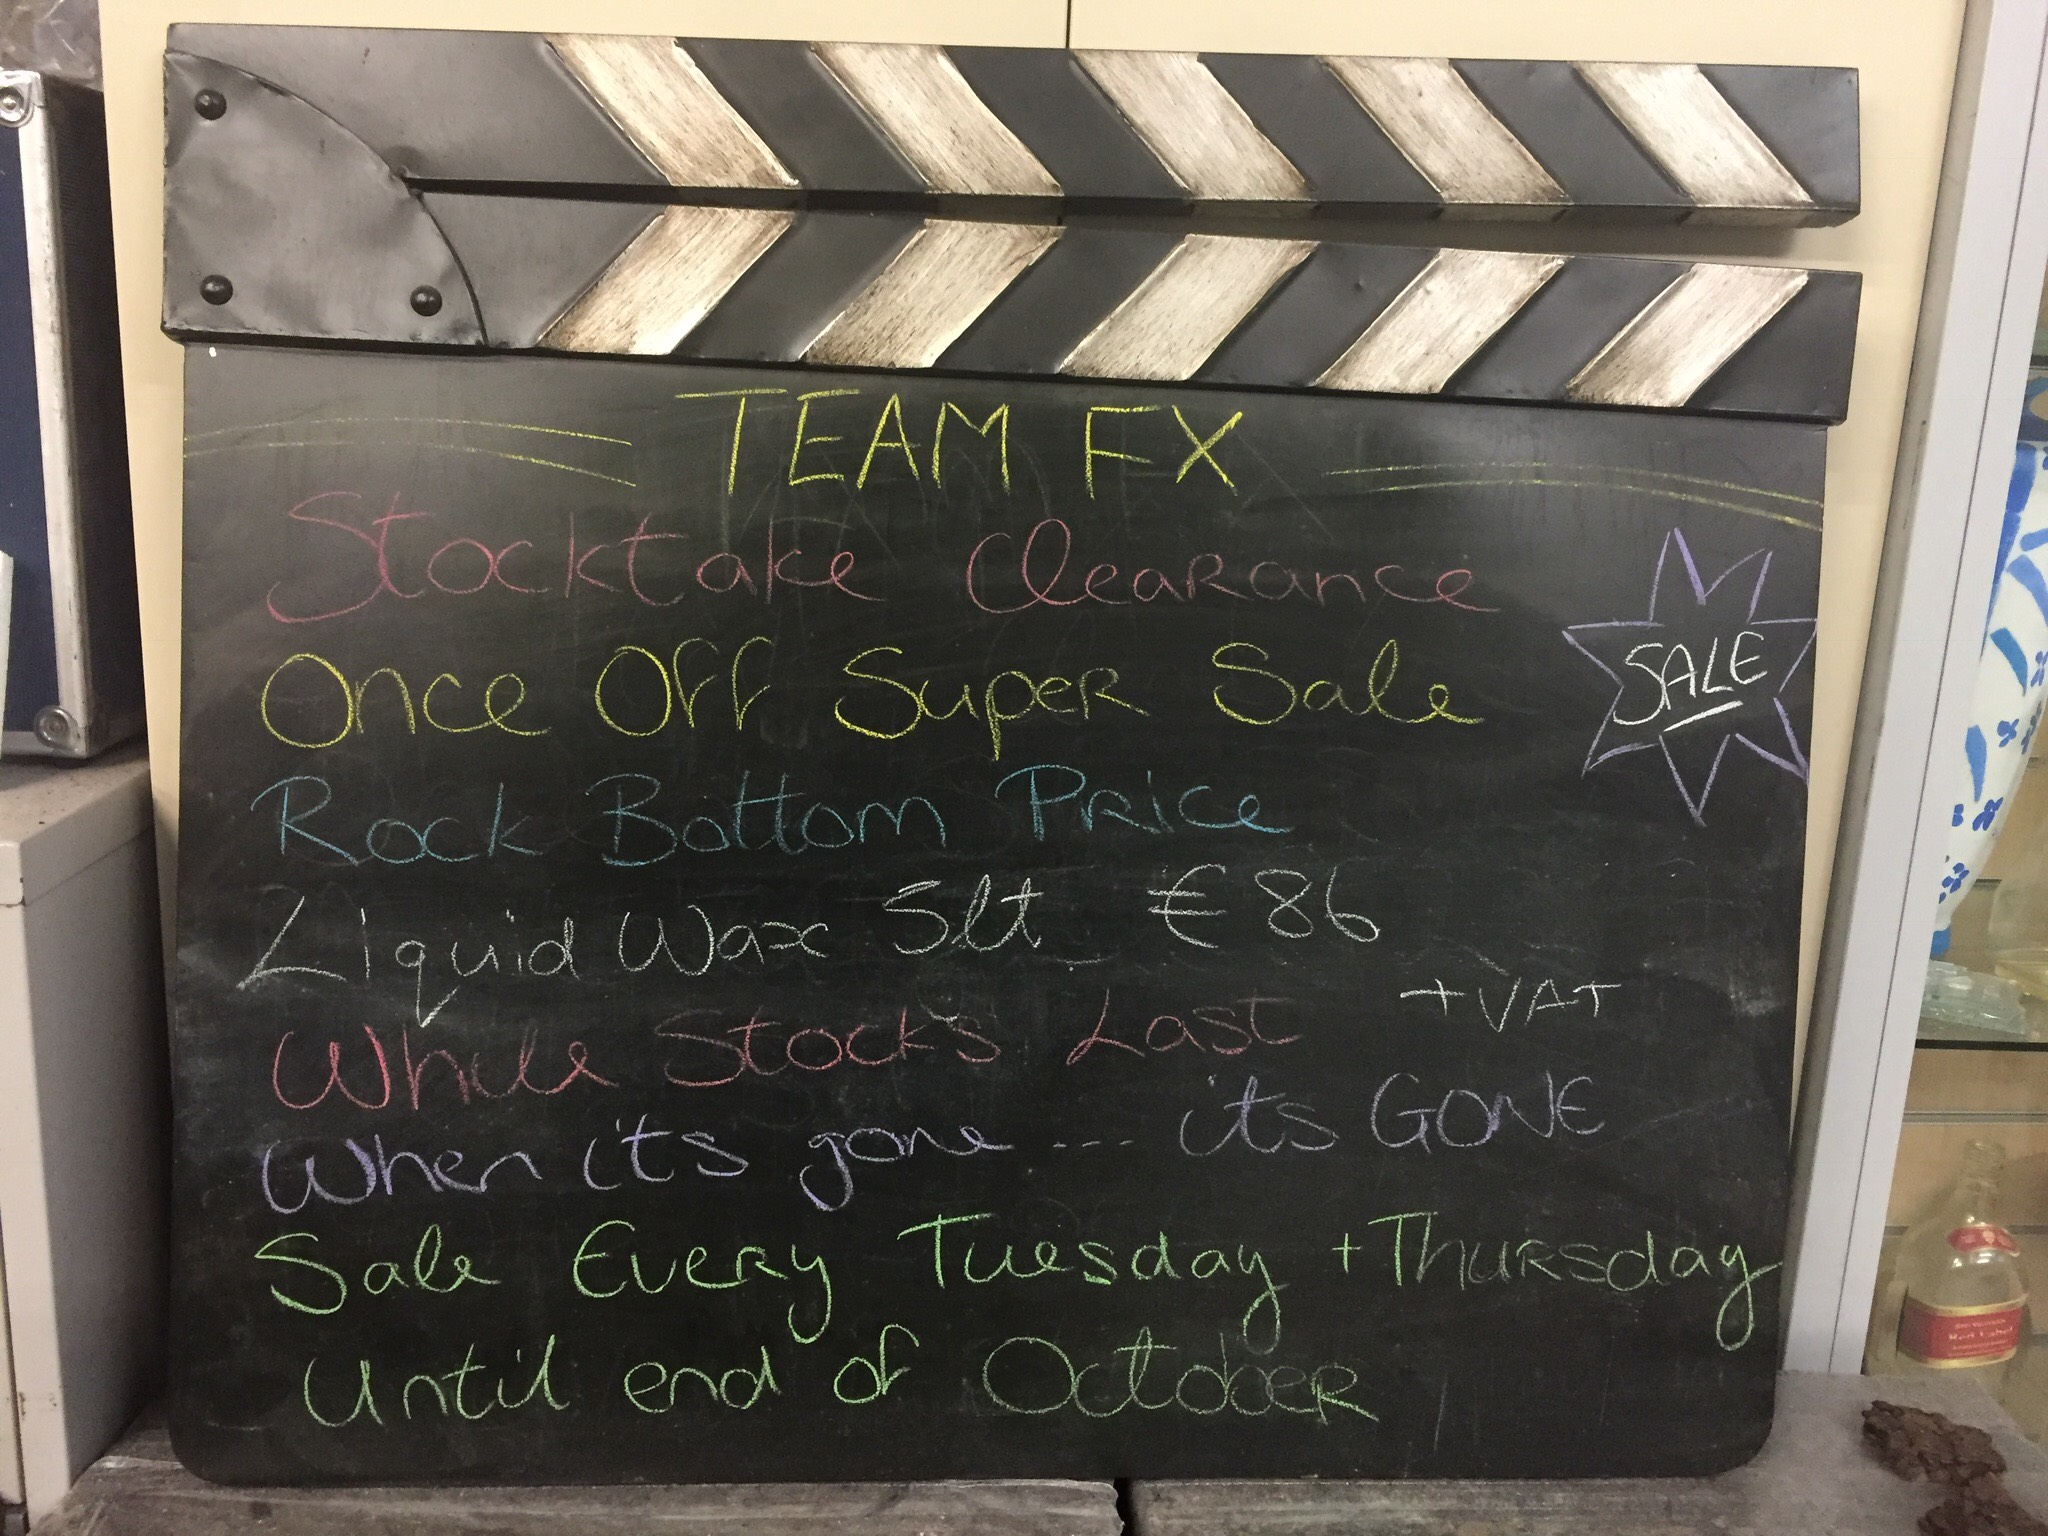 TEAM FX
Stocktake Clearance
Once Off Super Sale
SALE
Rock Bottom Price
Liquid Wax 5lt €86
+VAT
While Stocks Last
When it's gone --- its GONE
Sale Every Tuesday + Thursday
Until end of October
Red Label